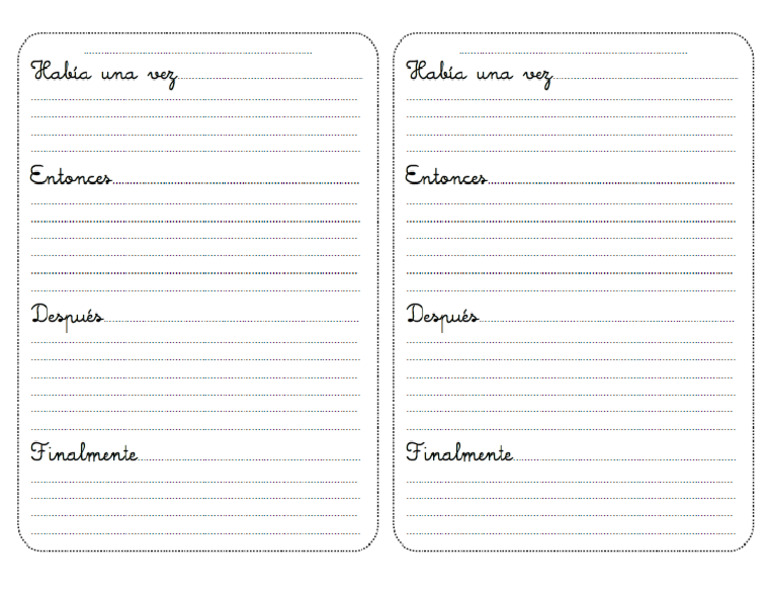 Había una vez
Entonces
Después
Finalmente
Había una vez
Entonces
Después
Finalmente